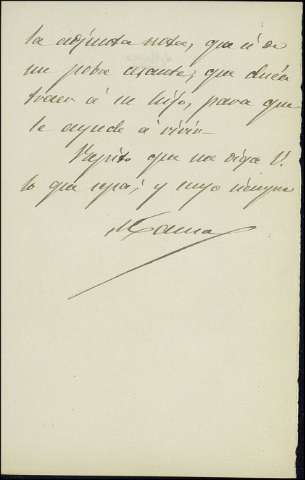 la adjunta nota, que es de
un pobre cesante, que desea
traer á su hijo, para que
le ayude á vivir.
Repito que me diga V.
lo que sepa; y suyo siempre